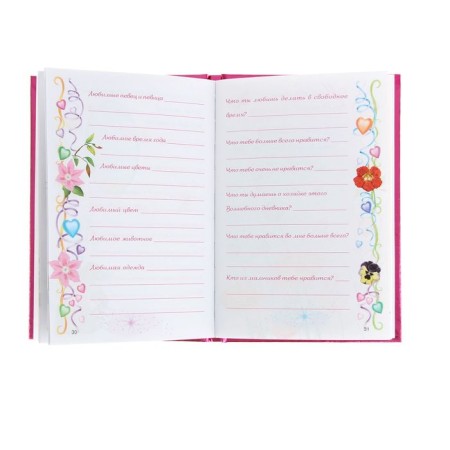 Любимые певец и певица
Любимое время года
Любимые цветы
Любимый цвет
Любимое животное
Любимая одежда
30
Что ты любишь делать в свободное
время?
Что тебе больше всего нравится?
Что тебе не нравится?
Что ты думаешь о хозяйке этого
Волшебного дневника?
Что тебе нравится во мне больше всего?
Кто из мальчиков тебе нравится?
31